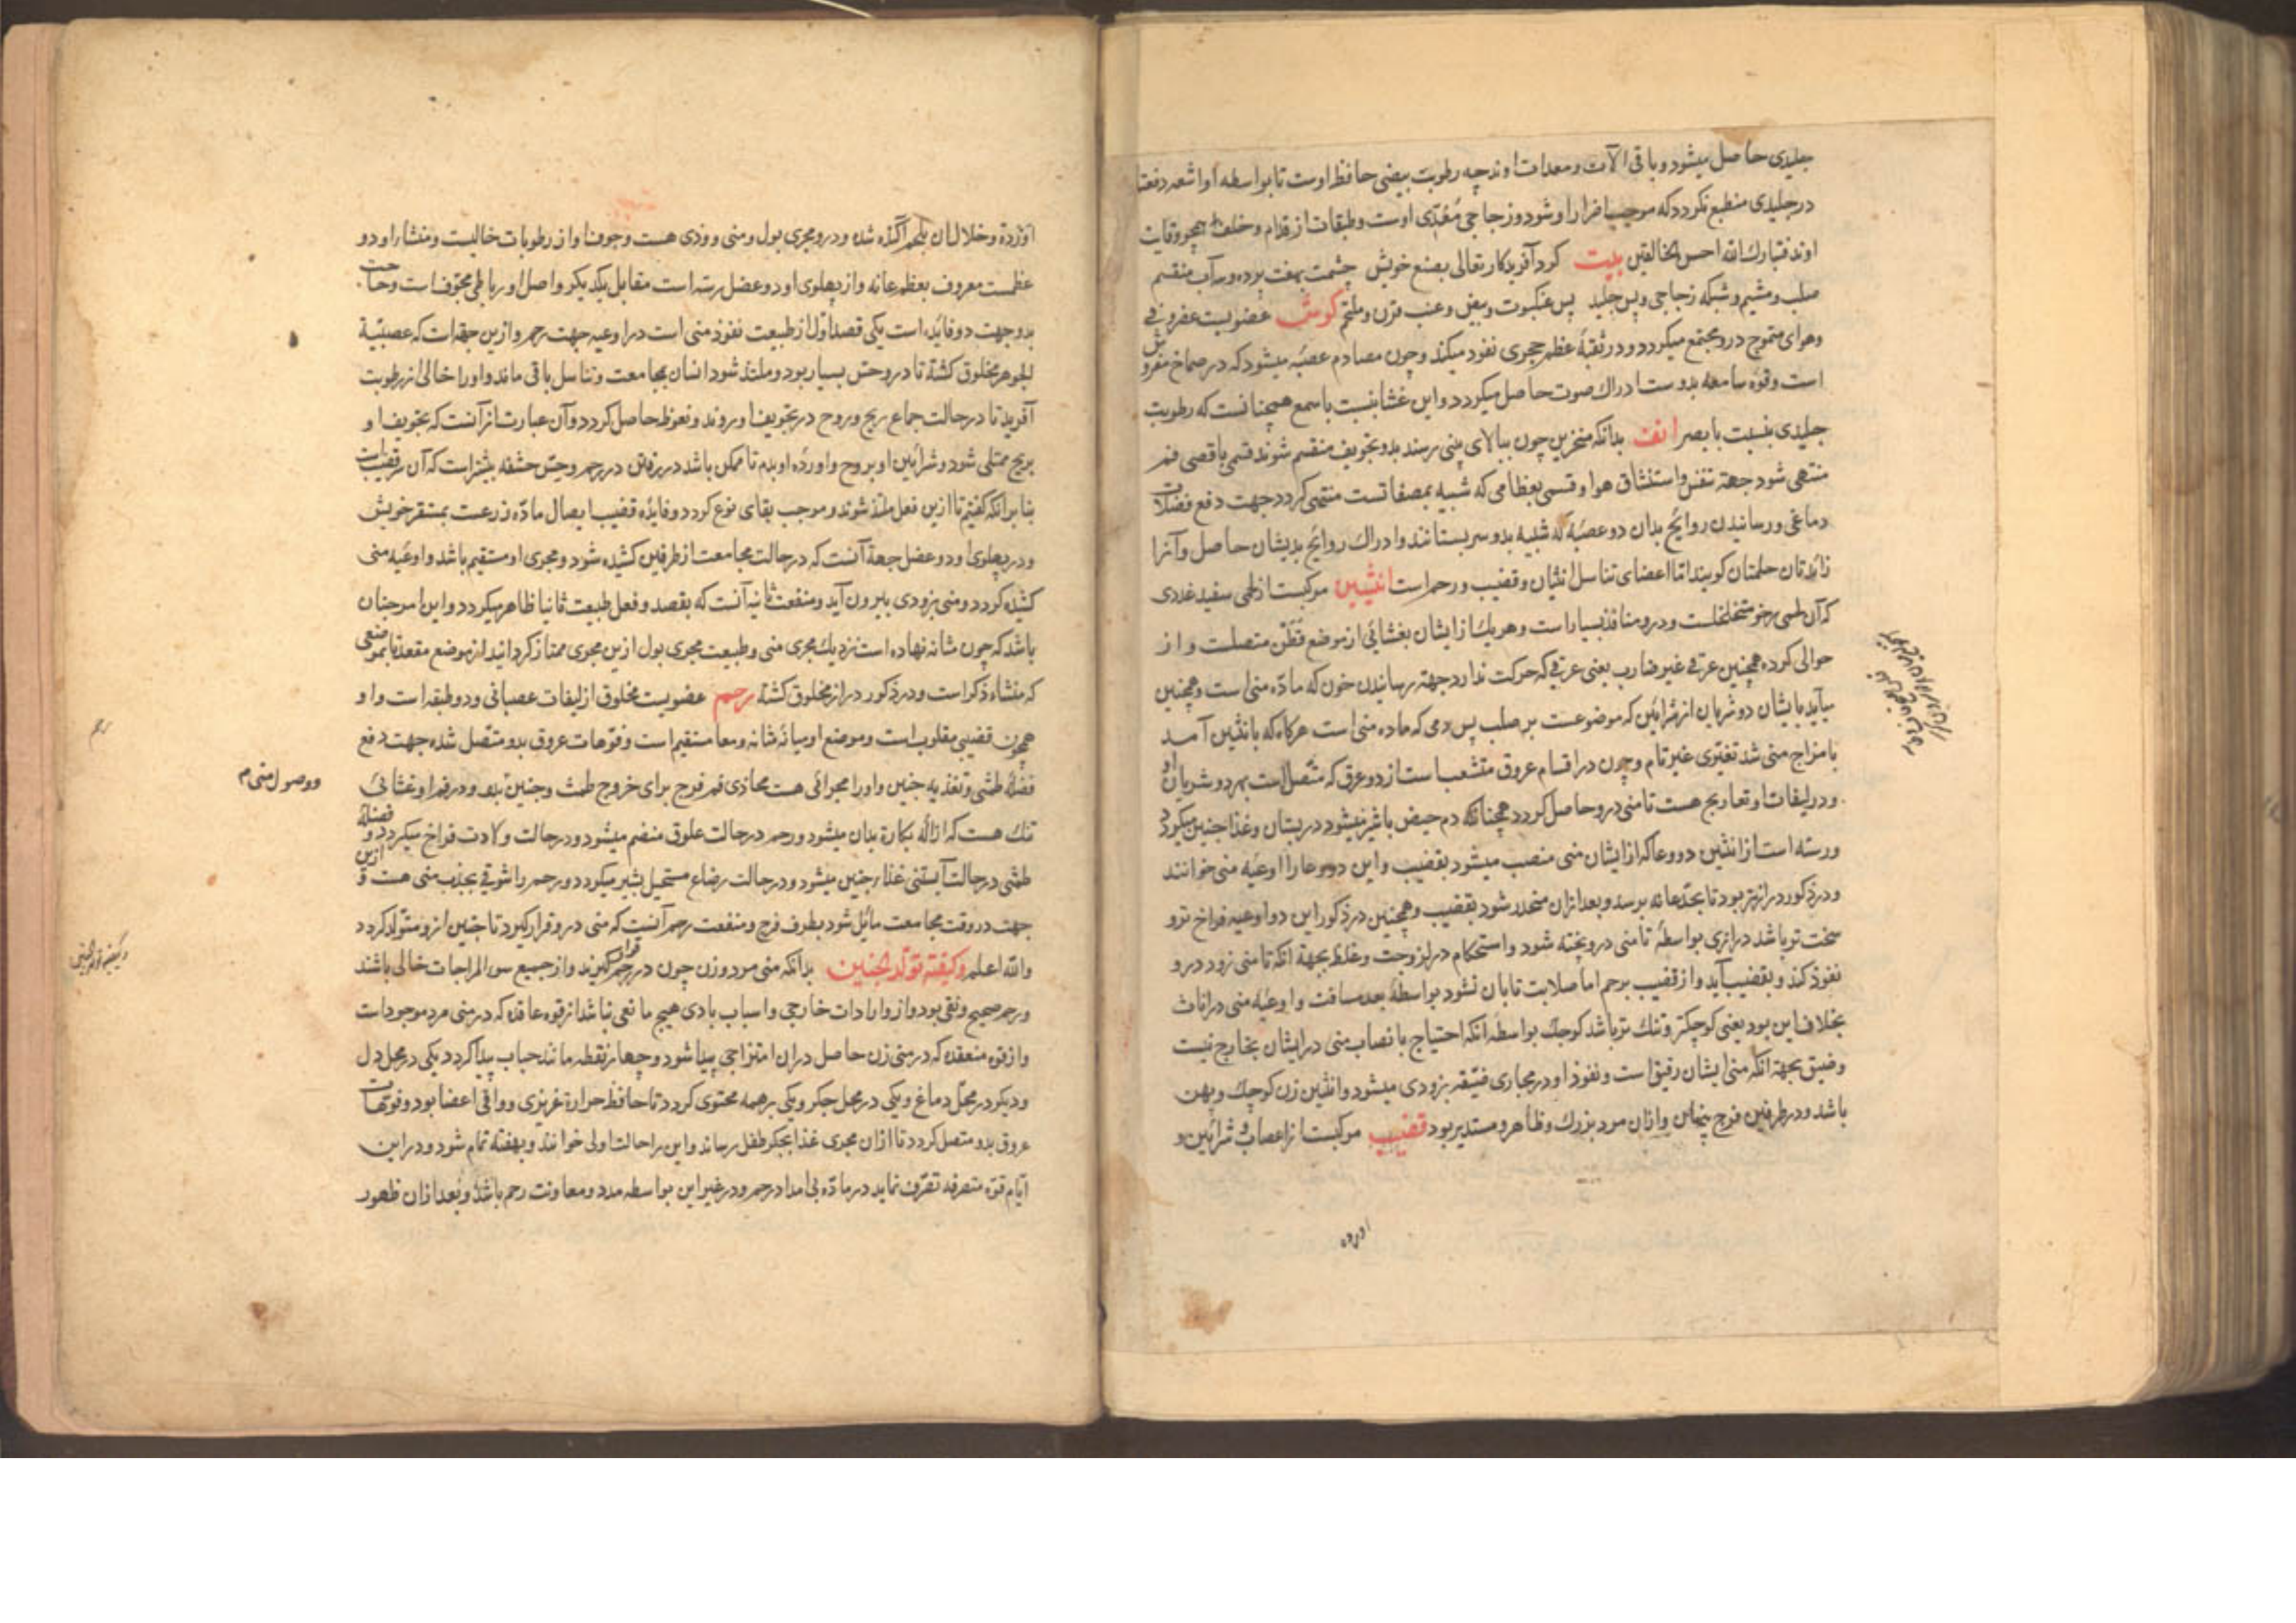 جلیدی حاصل میشود و باقی الات و معدات اوند چه رطوبت بیضی حافظ اوست تا بواسطه او اشعه دفعة
در جلیدی منطبع نکردد که موجب اضرار او شود و زجاجی مغذی اوست و طبقات از قدام و خلف همچو وقایت
اوند فتبارک الله احسن الخالقین بیت کرد آفریدکار تعالی بصنع خویش چشمت بهفت پرده و سه آب منقسم
صلب و مشیم و شبکه زجاجی و پس جلید پس عنکبوت و بیض و عنب قرن و ملتحم کوش عضویست غضروفی
و هوای متموج درو مجتمع میکردد و در ثقبهٔ عظم حجری نفوذ میکند و چون مصادم عصبه میشود که در صماخ مفروش
است و قوه سامعه بدوست ادراک صوت حاصل میکردد و این غشا بنسبت با سمع همچنانست که رطوبت
جلیدی بنسبت با بصر انف بدانکه منخرین چون ببالای بینی رسند بدو تجویف منقسم شوند قسمی باقصی فم
منتهی شود جهة تنفس و استنشاق هوا و قسمی بعظامی که شبیه بمصفاتست منتهی کردد جهت دفع فضلات
دماغی و رسانیدن روایح بدان دو عصبه که شبیه بدو سر پستانند و ادراک روایح بدیشان حاصل و آنرا
زائدتان حلمتان کویند اما اعضای تناسل انثیان و قضیب و رحم است انثیین مرکبست از لحمی سفید غددی
که آن لحمی رخو متخلخلست و درو منافذ بسیار است و هر یک از ایشان بغشائی از موضع قطن متصلست و از
حوالی کرده همچنین عرقی غیر ضارب یعنی عرقی که حرکت ندارد جهة رسانیدن خون که مادّه منی است و همچنین
میآید بایشان دو شریان از شرائین که موضوعست بر صلب پس دمی که ماده منی است هرکاه که بانثیین آمد
با مزاج منی شد تغیری غیر تام و چون در اقسام عروق متشعب است از دو عرق که متصل است بهر دو شریان او
و در لیفات او تعاریج هست تا منی درو حاصل کردد همچنانکه دم حیض با شیر میشود در پستان و غذا جنین میکردد
و رسته است از انثیین دو وعا که از ایشان منی منصب میشود بقضیب و این دو وعا را اوعیه منی خوانند
و در ذکور درازتر بود تا بحد عانه برسد و بعد ازان منحدر شود بقضیب و همچنین در ذکور این دو اوعیه فراخ تر و
سخت تر باشد درازی بواسطهٔ تا منی درو پخته شود و استحکام در لزوجت و غلظ بجهة انکه تا منی زود درو
نفوذ کند و بقضیب آید و از قضیب برحم اما صلابت تا بان نشود بواسطهٔ بعد مسافت و اوعیه منی در اناث
بخلاف این بود یعنی کوچکتر و تنک تر باشد کوچک بواسطه انکه احتیاج با نصاب منی در ایشان بخارج نیست
و ضیق بجهة انکه منی ایشان رقیق است و نفوذ او در مجاری ضیقه بزودی میشود و انثیین زن کوچک و پهن
باشد و در طرفین فرج پنهان و ازان مرد بزرک و ظاهر و مستدیر بود قضیب مرکبست از اعصاب و شرائین و
اورده
اورده و خلال ان بلحم آکنده شده و درو مجری بول و منی و وذی هست و جوف او از رطوبات خالیست و منشأ او دو
عظمست معروف بعظم عانه و از پهلوی او دو عضل رسته است مقابل یکدیکر و اصل او رباطی مجوف است و حاجت
بدو جهت دو فایده است یکی قصد اوّل از طبیعت نفوذ منی است در اوعیه جهت رحم و ازین جهة است که عصبیّة
الجوهر مخلوق کشته تا درو حس بسیار بود و ملتذ شود انسان بمجامعت و تناسل باقی ماند و او را خالی از رطوبت
آفرید تا در حالت جماع ریح و روح در تجویف او روند و نعوظ حاصل کردد و آن عبارت از آنست که تجویف او
بریح ممتلی شود و شرائین او بروح و اورده او بدم تا ممکن باشد در رحم و حس حشفه بیشتر است که آن قضیب است
بنابر انکه کفتیم تا ازین فعل ملتذ شوند و موجب بقای نوع کردد و فایده قضیب ایصال مادّه زرعست بمستقر خویش
و در پهلوی او دو عضل جهة آنست که در حالت مجامعت از طرفین کشیده شود و مجری او مستقیم باشد و اوعیه منی
کشیده کردد و منی بزودی بیرون آید و منفعت ثانیه آنست که بقصد و فعل طبیعت ثانیا ظاهر میکردد و این امر چنان
باشد که چون مثانه نهاده است نزدیک مجری منی و طبیعت مجری بول ازین مجری ممتاز کردانید از موضع مقعد تا بموضعی
که منشاء ذکر است و در ذکور دراز مخلوق کشته رحم عضویست مخلوق از لیفات عصبانی و دو طبقه است و او
همچون قضیبی مقلوب است و موضع او میانه مثانه و معا مستقیم است و فوهات عروق بدو متصل شده جهت دفع
فضلهٔ طمثی و تغذیه جنین و او را مجرائی هست محاذی فم فرج برای خروج طمث و جنین و در فم او غشائی
ووصول منی م
تنک هست که ازاله بکارة بدان میشود و رحم در حالت علوق منضم میشود و در حالت ولادت فراخ میکردد و فضله
طمثی در حالت آبستنی غذا جنین میشود و در حالت رضاع مستحیل بشیر میکردد و رحم را شوقی بجذب منی هست و ازین
جهت در وقت مجامعت مائل شود بطرف فرج و منفعت رحم آنست که منی درو قرار کیرد تا جنین ازو متولد کردد
والله اعلم و کیفیّة تولّد الجنین بدانکه منی مرد و زن چون در رحم قرار کیرند و از جمیع سو المزاجات خالی باشند
و رحم صحیح و نقی بود و از واردات خارجی و اسباب بادی هیچ مانعی نباشد از قوه عاقده که در منی مرد موجودست
و از قوه منعقده که در منی زن حاصل دران امتزاجی پیدا شود و چهار نقطه مانند حباب پیدا کردد یکی در محل دل
و دیکر در محل دماغ و یکی در محل جکر و یکی بر همه محتوی کردد تا حافظ حرارة غریزی و واقی اعضا بود و فوهات
عروق بدو متصل کردد تا ازان مجری غذا بجکر طفل رساند و این را حالت اولی خوانند و بهفته تمام شود و در این
ایّام قوّه متصرفه تصرّف نماید در مادّه بی امداد رحم و در غیر این بواسطه مدد و معاونت رحم باشد و بعد ازان ظهور
رحم